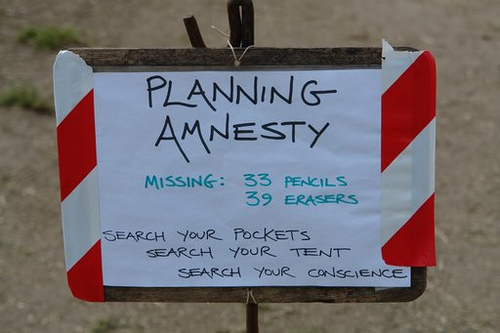 PLANNING
AMNESTY
MISSING: 33 PENCILS
39 ERASERS
SEARCH YOUR POCKETS
SEARCH YOUR TENT
SEARCH YOUR CONSCIENCE